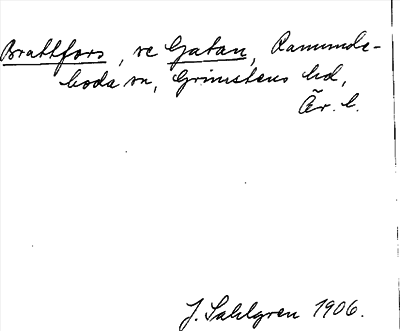 Brattfors, vc Gatan, Ramunda-
boda sn, Grimstens hd,
Ör. l.
J. Sahlgren 1906.